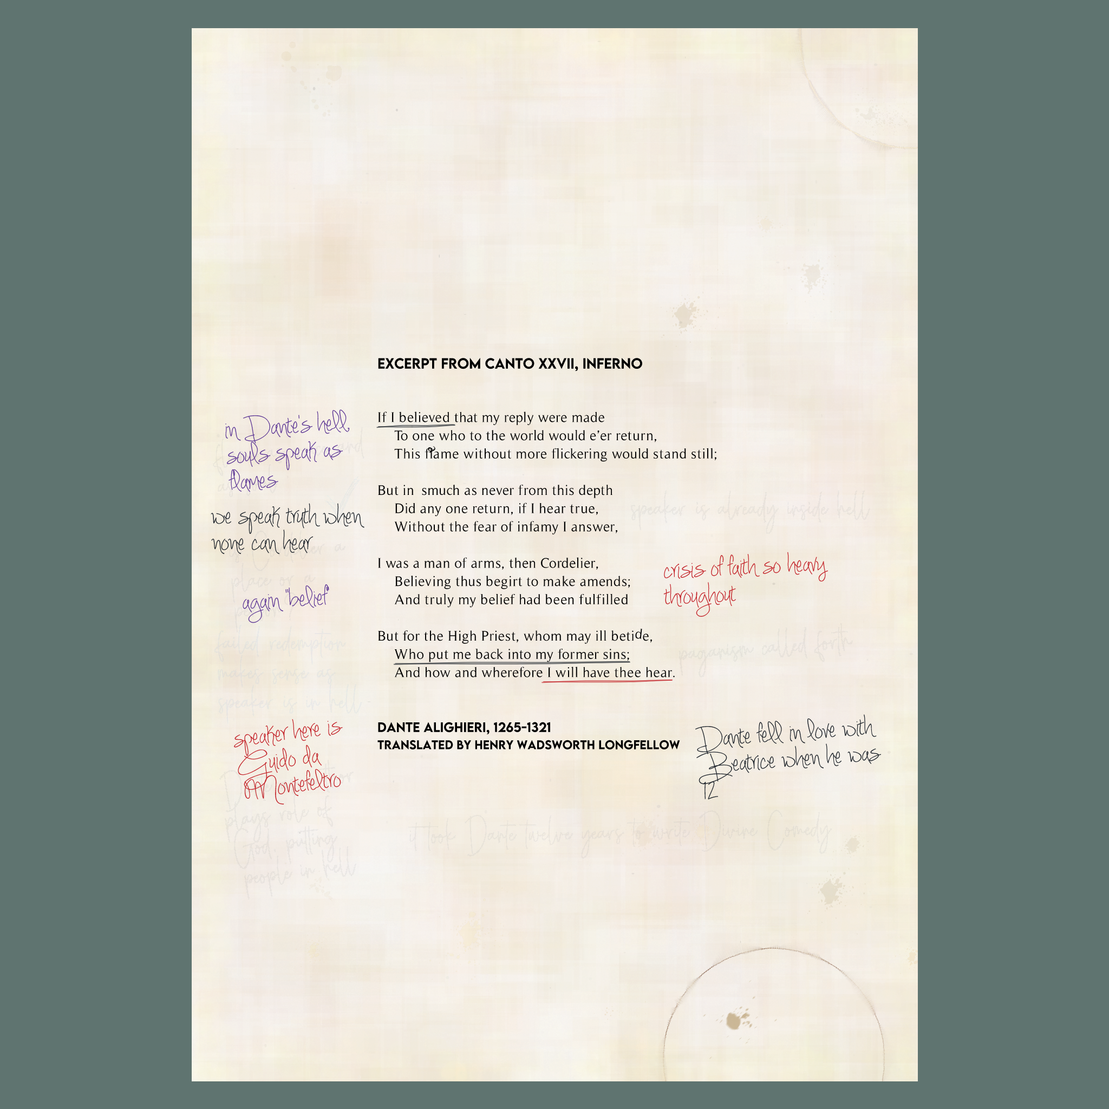 EXCERPT FROM CANTO XXVII, INFERNO
in Dante's hell
souls speak as
flames
we speak truth when
none can hear
again "belief"
If I believed that my reply were made
To one who to the world would e'er return,
This flame without more flickering would stand still;
But in smuch as never from this depth
Did any one return, if I hear true,
Without the fear of infamy I answer,
I was a man of arms, then Cordelier,
Believing thus begirt to make amends;
And truly my belief had been fulfilled
But for the High Priest, whom may ill betide,
Who put me back into my former sins;
And how and wherefore I will have thee hear.
speaker is already inside hell
crisis of faith so heavy
throughout
paganism called forth
place or a
failed redemption
makes sense as
speaker is in hell
speaker here is
Guido da
Montefeltro
DANTE ALIGHIERI, 1265-1321
TRANSLATED BY HENRY WADSWORTH LONGFELLOW
Dante fell in love with
Beatrice when he was
12
plays role of
God, putting
people in hell
it took Dante twelve years to write Divine Comedy